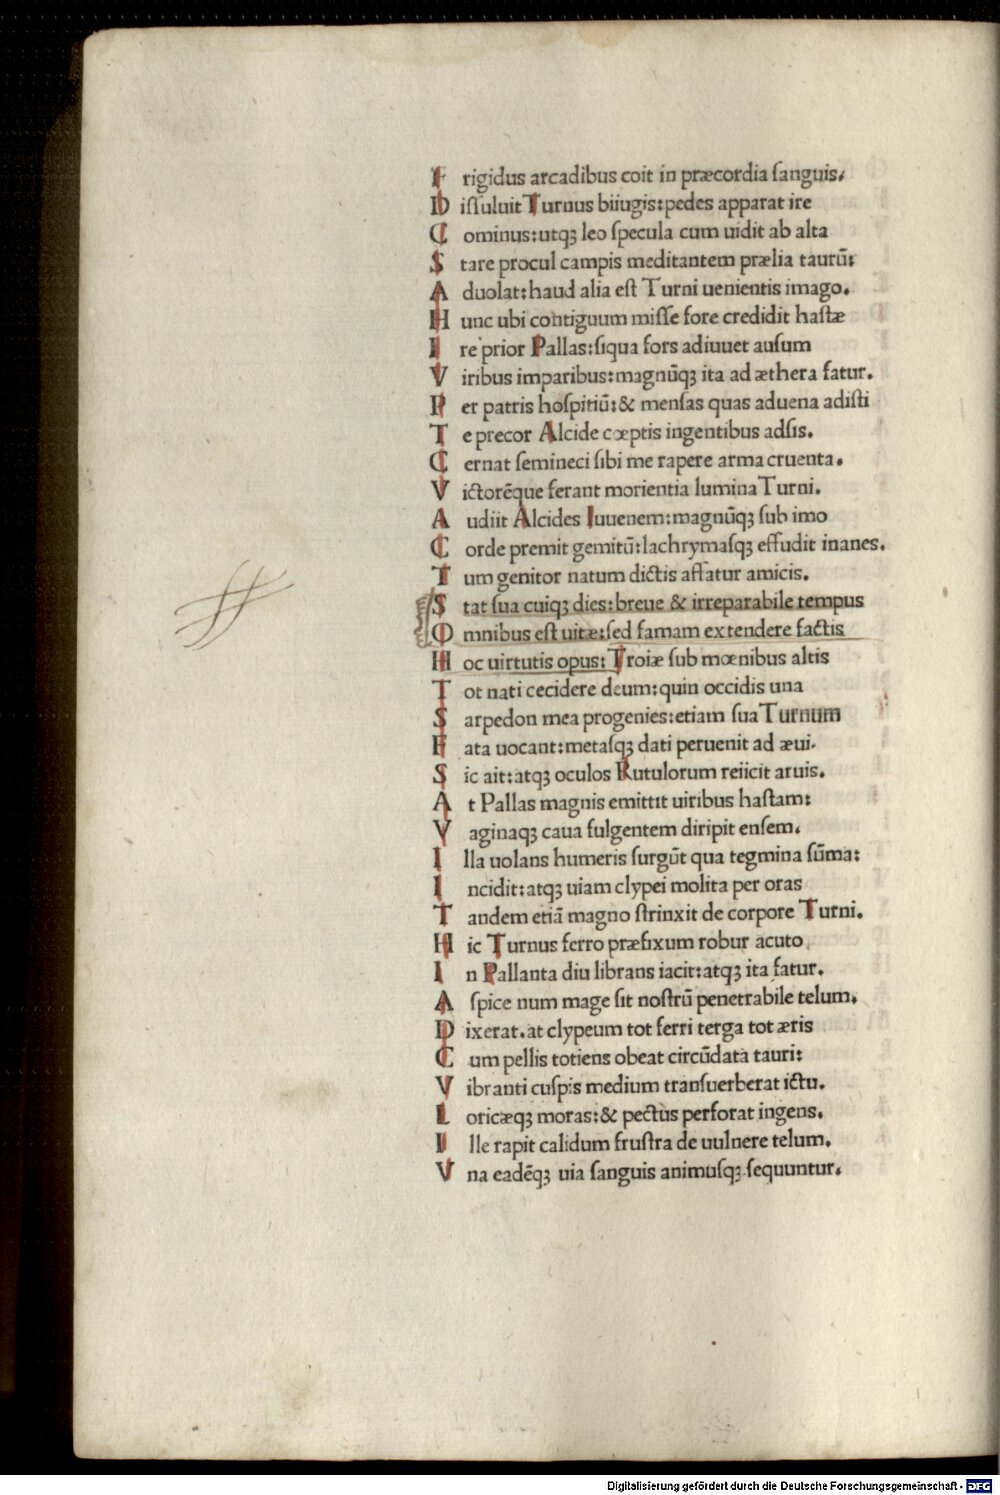 F rigidus arcadibus coit in præcordia ſanguis.
D iſſuluit Turnus biiugis:pedes apparat ire
C ominus:utqꝫ leo ſpecula cum uidit ab alta
S tare procul campis meditantem prælia taurū:
A duolat:haud alia eſt Turni uenientis imago.
H unc ubi contiguum miſſe fore credidit haſtæ
I re prior Pallas:ſiqua fors adiuuet auſum
V iribus imparibus:magnūqꝫ ita ad æthera fatur.
P er patris hoſpitiū:& menſas quas aduena adiſti
T e precor Alcide cœptis ingentibus adſis.
C ernat ſemineci ſibi me rapere arma cruenta.
V ictorēque ferant morientia lumina Turni.
A udiit Alcides Iuuenem:magnūqꝫ ſub imo
C orde premit gemitū:lachrymaſqꝫ effudit inanes.
T um genitor natum dictis affatur amicis.
S tat ſua cuiqꝫ dies:breue & irreparabile tempus
O mnibus eſt uitæ:ſed famam extendere factis
H oc uirtutis opus: Troiæ ſub mœnibus altis
T ot nati cecidere deum:quin occidis una
S arpedon mea progenies:etiam ſua Turnum
F ata uocant:metaſqꝫ dati peruenit ad æui.
S ic ait:atqꝫ oculos Rutulorum reiicit aruis.
A t Pallas magnis emittit uiribus haſtam:
V aginaqꝫ caua fulgentem diripit enſem.
I lla uolans humeris ſurgūt qua tegmina ſūma:
I ncidit:atqꝫ uiam clypei molita per oras
T andem etiā magno ſtrinxit de corpore Turni.
H ic Turnus ferro præfixum robur acuto
I n Pallanta diu librans iacit:atqꝫ ita fatur.
A ſpice num mage ſit noſtrū penetrabile telum.
D ixerat.at clypeum tot ferri terga tot æris
C um pellis totiens obeat circūdata tauri:
V ibranti cuſpis medium tranſuerberat ictu.
L oricæqꝫ moras:& pectus perforat ingens.
I lle rapit calidum fruſtra de uulnere telum.
V na eadēqꝫ uia ſanguis animuſqꝫ ſequuntur.
Digitalisierung gefördert durch die Deutsche Forschungsgemeinschaft - DFG